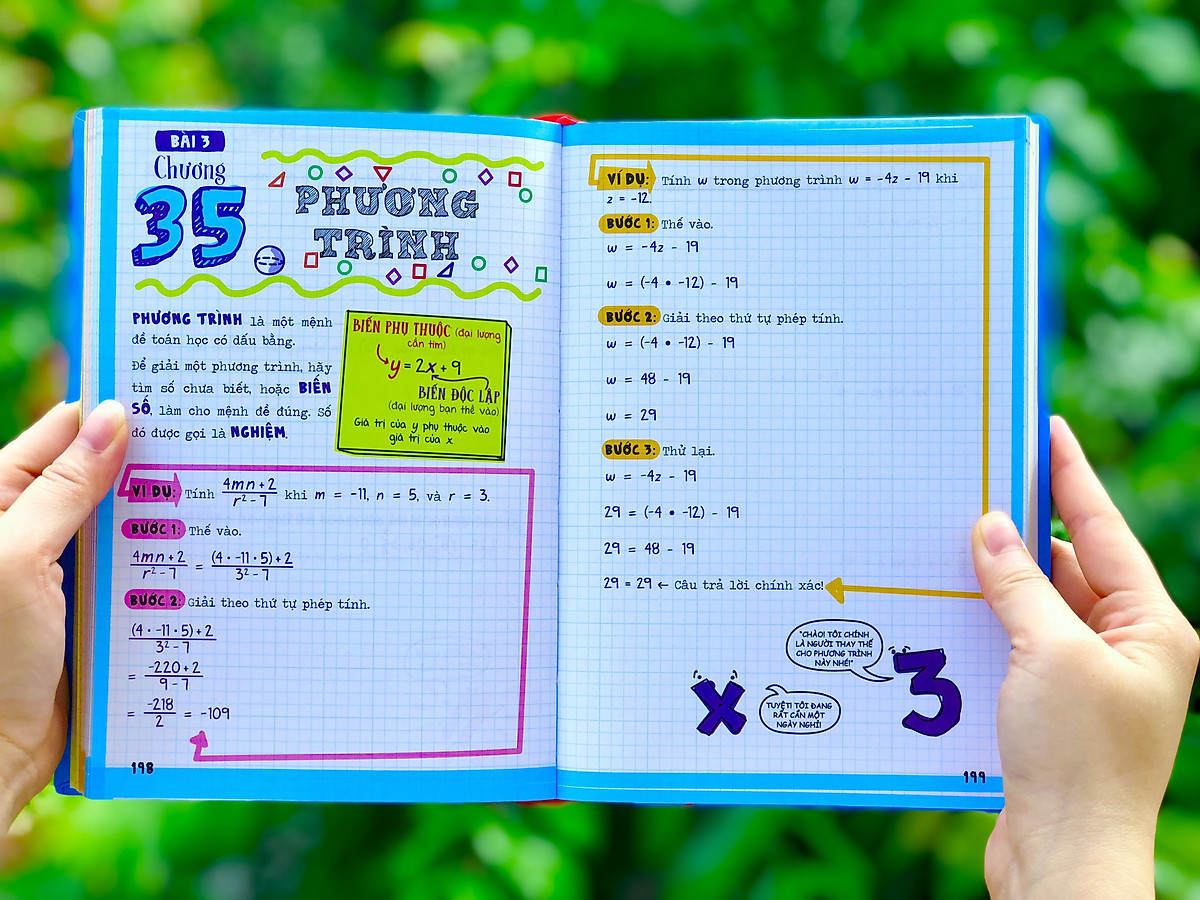 BÀI 3
Chương
35
PHƯƠNG
TRÌNH
PHƯƠNG TRÌNH là một mệnh
đề toán học có dấu bằng.
Để giải một phương trình, hãy
tìm số chưa biết, hoặc BIẾN
SỐ, làm cho mệnh đề đúng. Số
đó được gọi là NGHIỆM.
BIẾN PHỤ THUỘC (đại lượng
cần tìm)
y = 2x + 9
BIẾN ĐỘC LẬP
(đại lượng bạn thế vào)
Giá trị của y phụ thuộc vào
giá trị của x
VÍ DỤ: Tính (4mn + 2)/(r² - 7) khi m = -11, n = 5, và r = 3.
BƯỚC 1: Thế vào.
(4mn + 2)/(r² - 7) = ((4 · -11 · 5) + 2)/(3² - 7)
BƯỚC 2: Giải theo thứ tự phép tính.
((4 · -11 · 5) + 2)/(3² - 7)
= (-220 + 2)/(9 - 7)
= -218/2 = -109
198
VÍ DỤ: Tính w trong phương trình w = -4z - 19 khi
z = -12.
BƯỚC 1: Thế vào.
w = -4z - 19
w = (-4 • -12) - 19
BƯỚC 2: Giải theo thứ tự phép tính.
w = (-4 • -12) - 19
w = 48 - 19
w = 29
BƯỚC 3: Thử lại.
w = -4z - 19
29 = (-4 • -12) - 19
29 = 48 - 19
29 = 29 ← Câu trả lời chính xác!
"CHÀO! TÔI CHÍNH
LÀ NGƯỜI THAY THẾ
CHO PHƯƠNG TRÌNH
NÀY NHÉ!"
x
TUYỆT! TÔI ĐANG
RẤT CẦN MỘT
NGÀY NGHỈ!
3
199